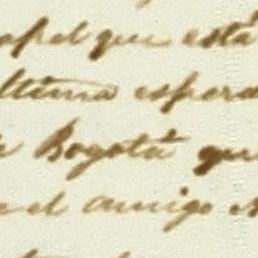 papel que está
última espera
Bogotá que
el amigo